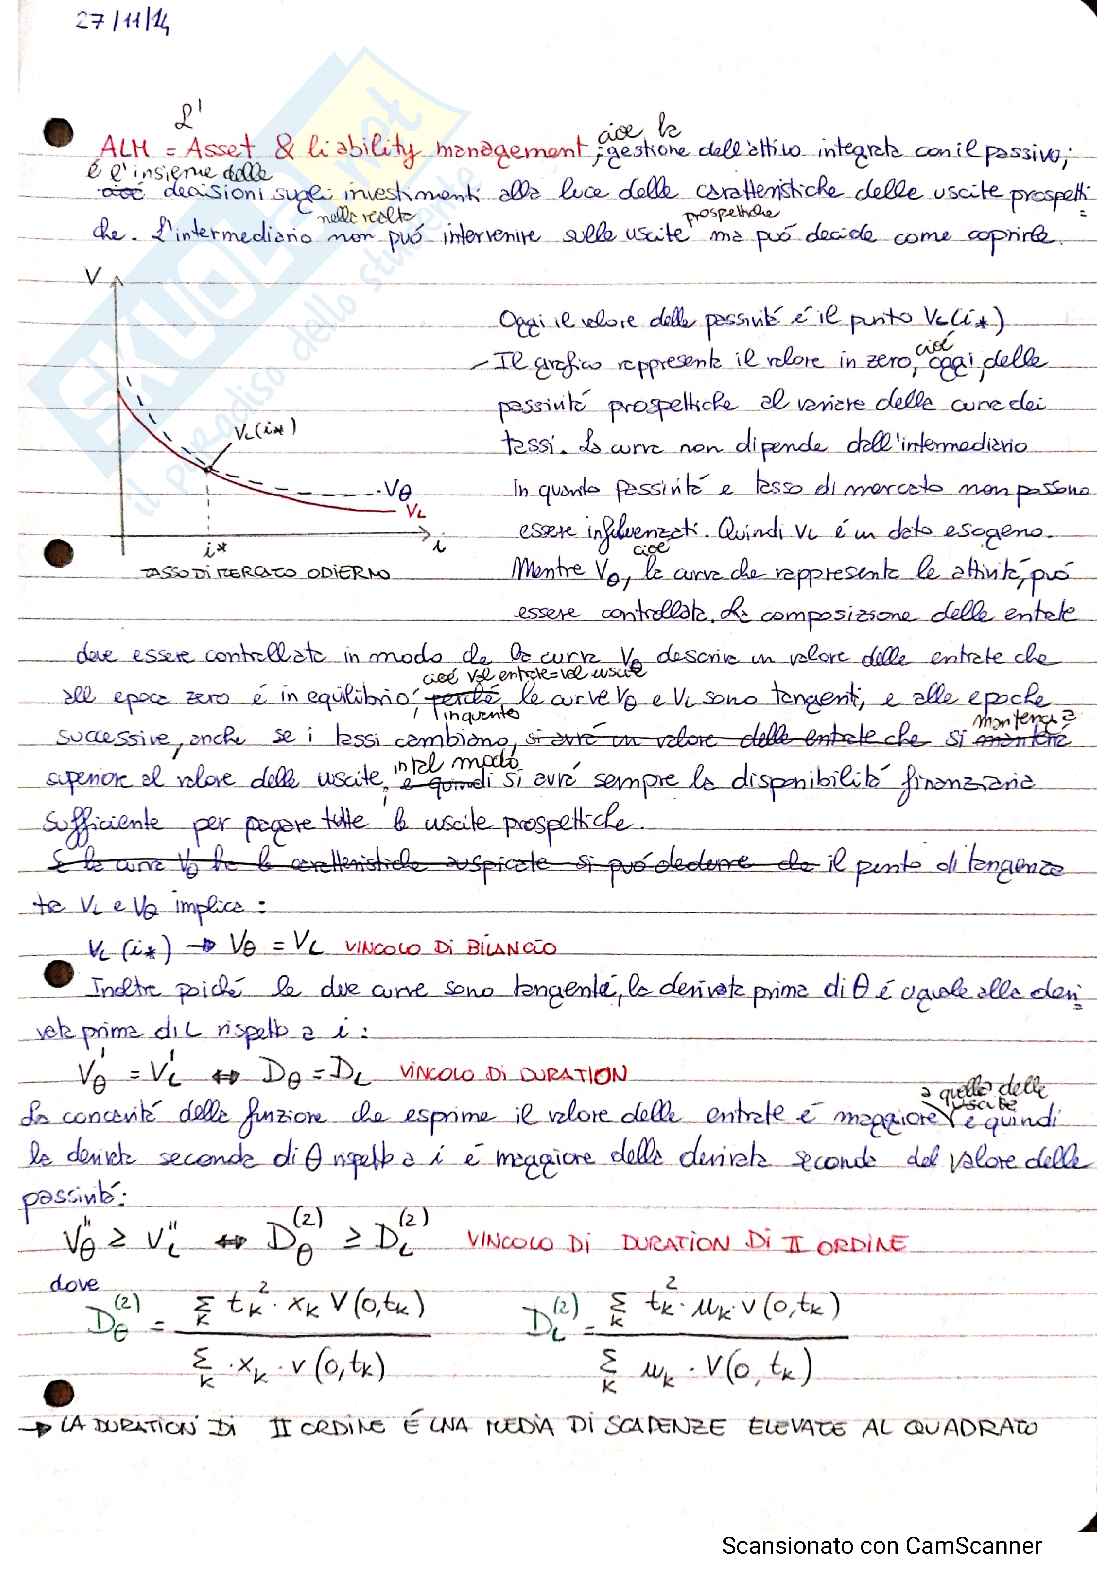 27/11/14
L'
ALM = Asset & liability management, cioè la gestione dell'attivo integrata con il passivo;
è l'insieme delle
cioè decisioni sugli investimenti alla luce delle caratteristiche delle uscite prospetti=
nella realtà prospettiche
che. L'intermediario non può intervenire sulle uscite ma può decide come coprirle.
V
VL(i*)
Vθ
VL
i*
i
TASSO DI MERCATO ODIERNO
Oggi il valore delle passività é il punto VL(i*)
- Il grafico rappresenta il valore in zero, cioè oggi, delle
passività prospettiche al variare della curva dei
tassi. La curva non dipende dall'intermediario
in quanto passività e tasso di mercato non possono
essere influenzati. Quindi VL é un dato esogeno.
Mentre Vθ, cioè la curva che rappresenta le attività, può
essere controllata. La composizione delle entrate
deve essere controllata in modo che la curva Vθ descriva un valore delle entrate che
cioè val entrate = val uscite
all'epoca zero é in equilibrio, perché le curve Vθ e VL sono tangenti, e alle epoche
inquanto
successive, anche se i tassi cambiano, si avrà un valore delle entrate che si manterrà
mantenga
superiore al valore delle uscite, e quindi si avrà sempre la disponibilità finanziaria
in tal modo
sufficiente per pagare tutte le uscite prospettiche.
Se la curva Vθ ha le caratteristiche auspicate si può dedurre che il punto di tangenza
tra VL e Vθ implica:
VL(i*) → Vθ = VL VINCOLO DI BILANCIO
Inoltre poiché le due curve sono tangenti, la derivata prima di θ é uguale alla deri=
vata prima di L rispetto a i:
V'θ = V'L ⇔ Dθ = DL VINCOLO DI DURATION
a quella delle uscite
La concavità della funzione che esprime il valore delle entrate é maggiore e quindi
la derivata seconda di θ rispetto a i é maggiore della derivata seconda del valore delle
passività:
V"θ ≥ V"L ⇔ Dθ(2) ≥ DL(2) VINCOLO DI DURATION DI II ORDINE
dove
Dθ(2) = Σk tk² · xk v(0,tk) / Σk · xk · v(0,tk) DL(2) = Σk tk² · μk · v(0,tk) / Σk μk · v(0,tk)
→ LA DURATION DI II ORDINE É UNA MEDIA DI SCADENZE ELEVATE AL QUADRATO
SKUOLA.not
il paradiso dello studente
Scansionato con CamScanner